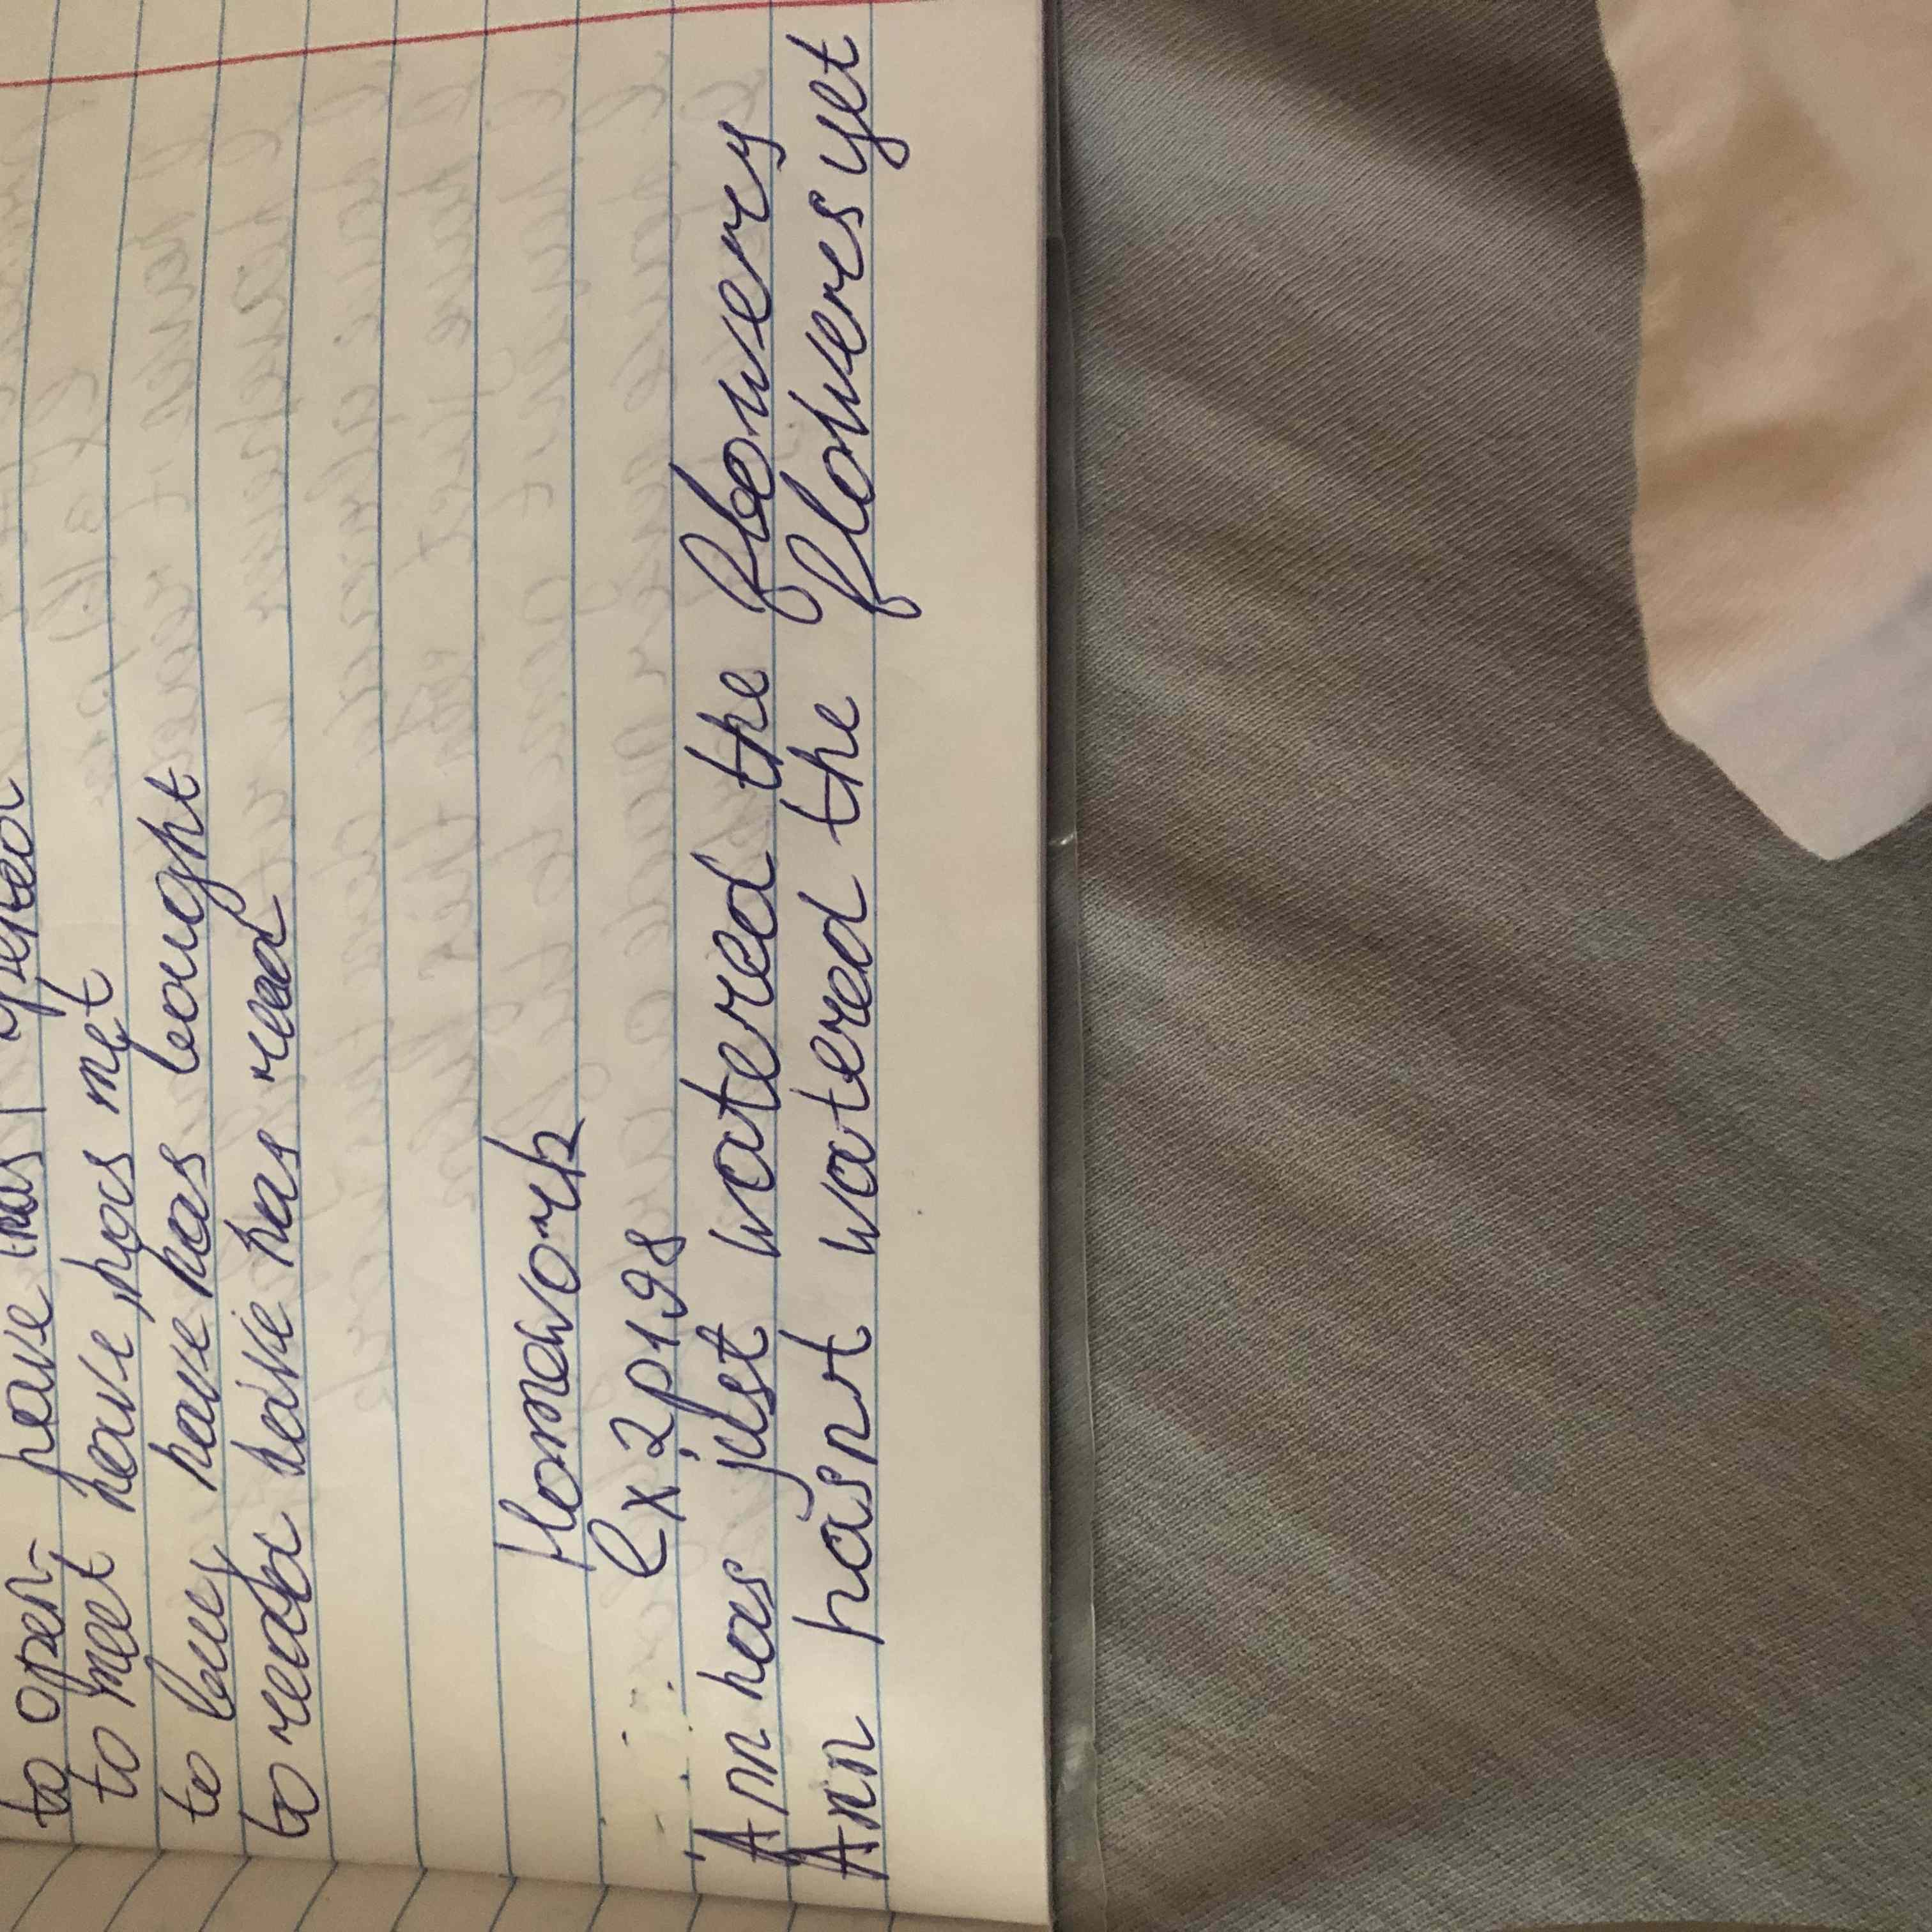 to open- have has opened
to meet have, has met
to buy have has bought
to read have has read
Homework
ex2p198
Ann has just watered the flowers
Ann hasnt watered the flowers yet